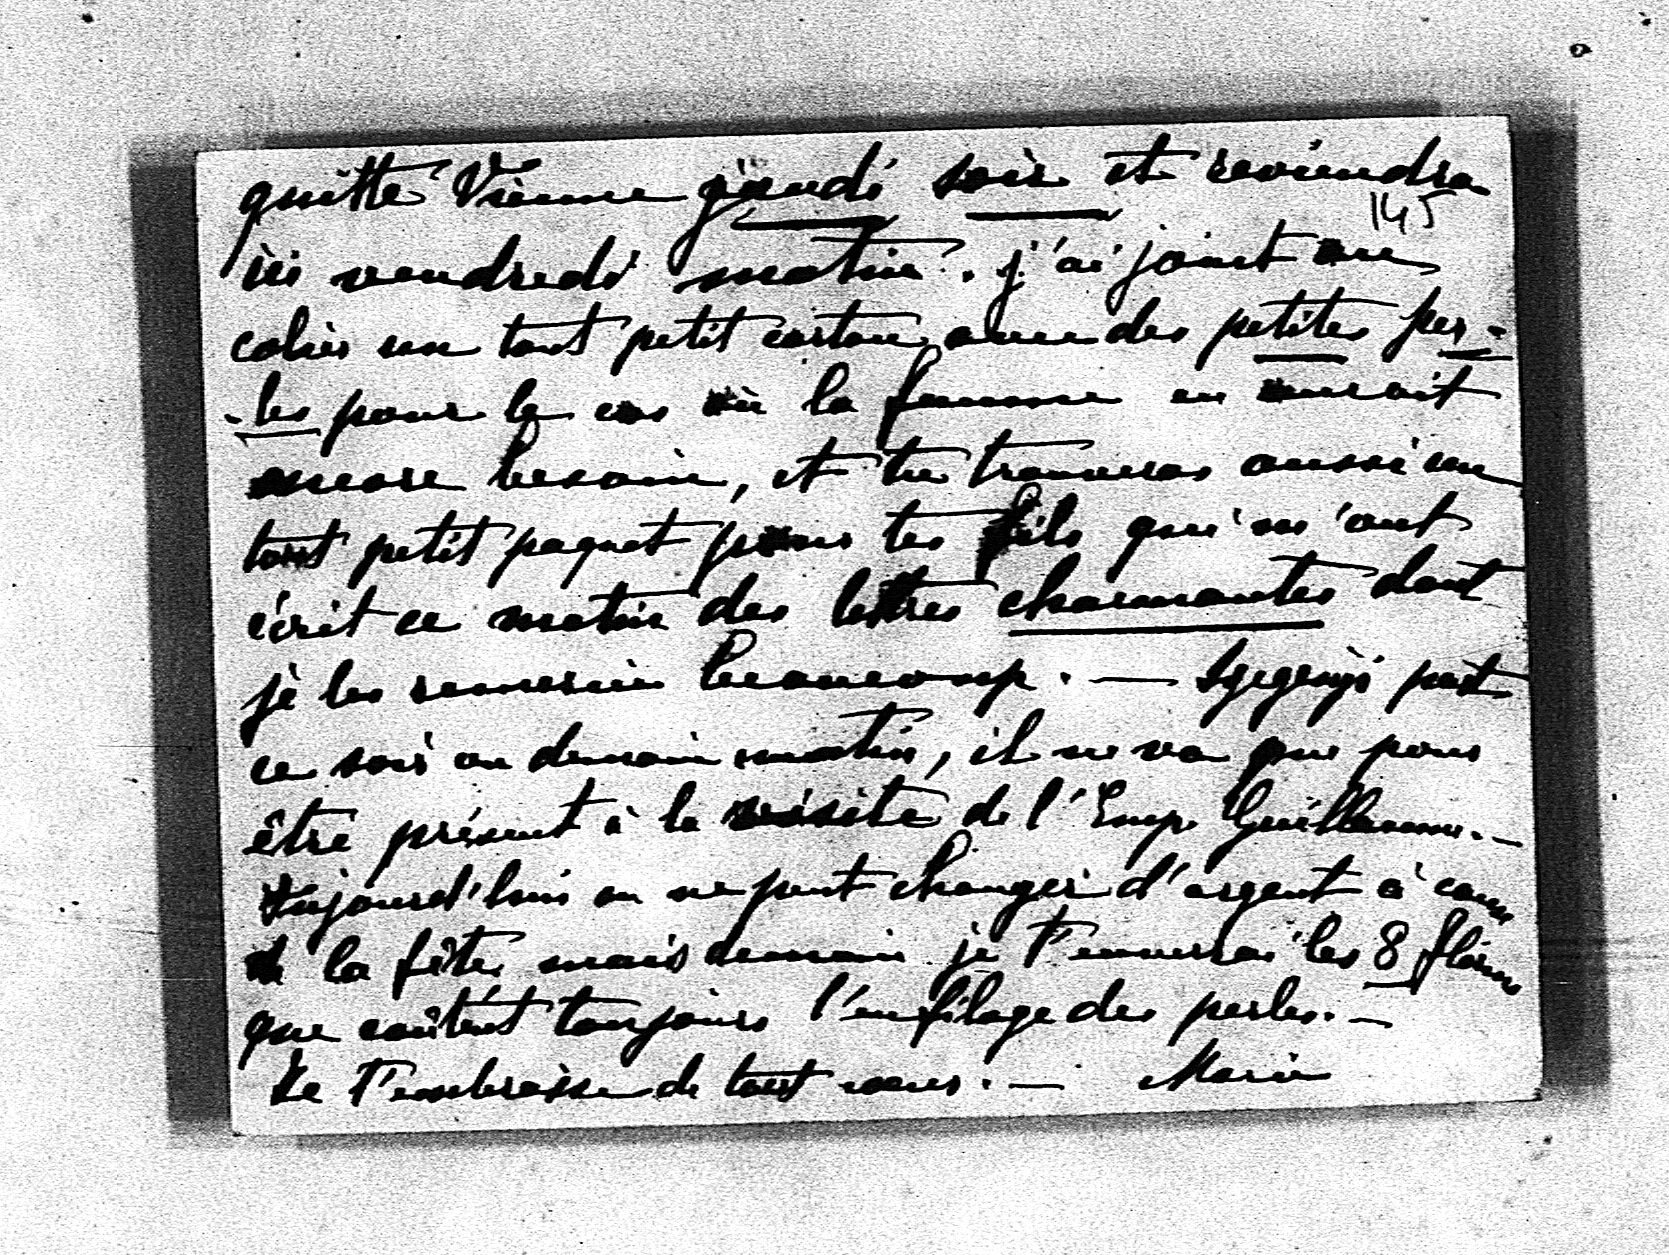 quitte Vienne jeudi soir et reviendra
145
ici vendredi matin. j'ai joint au
colier un tout petit carton avec des petites per-
-les pour le cas où la femme en aurait
encore besoin, et tu trouveras aussi un
tout petit paquet pour tes fils qui m'ont
écrit ce matin des lettres charmantes dont
je les remercie beaucoup. — part
ce soir ou demain matin, il ne va que pour
être présent à la visite de l'Emp. Guillaume. —
Aujourd'hui on ne peut changer d'argent à cause
de la fête, mais demain je t'enverrai les 8 florins
que coûtent toujours l'enfilage des perles. —
Je t'embrasse de tout cœur. — Marie